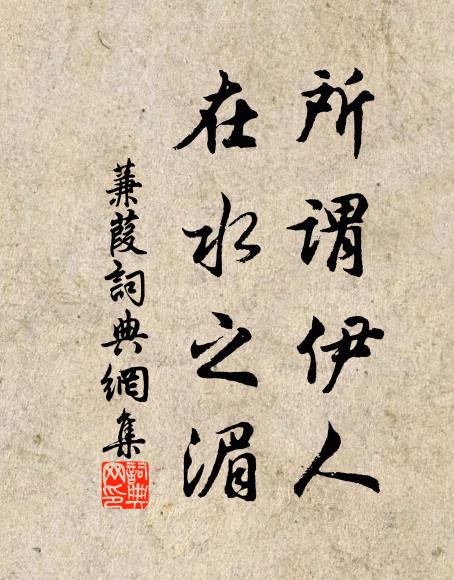 所謂伊人
在水之湄
蒹葭詞典網集
詞典
网印